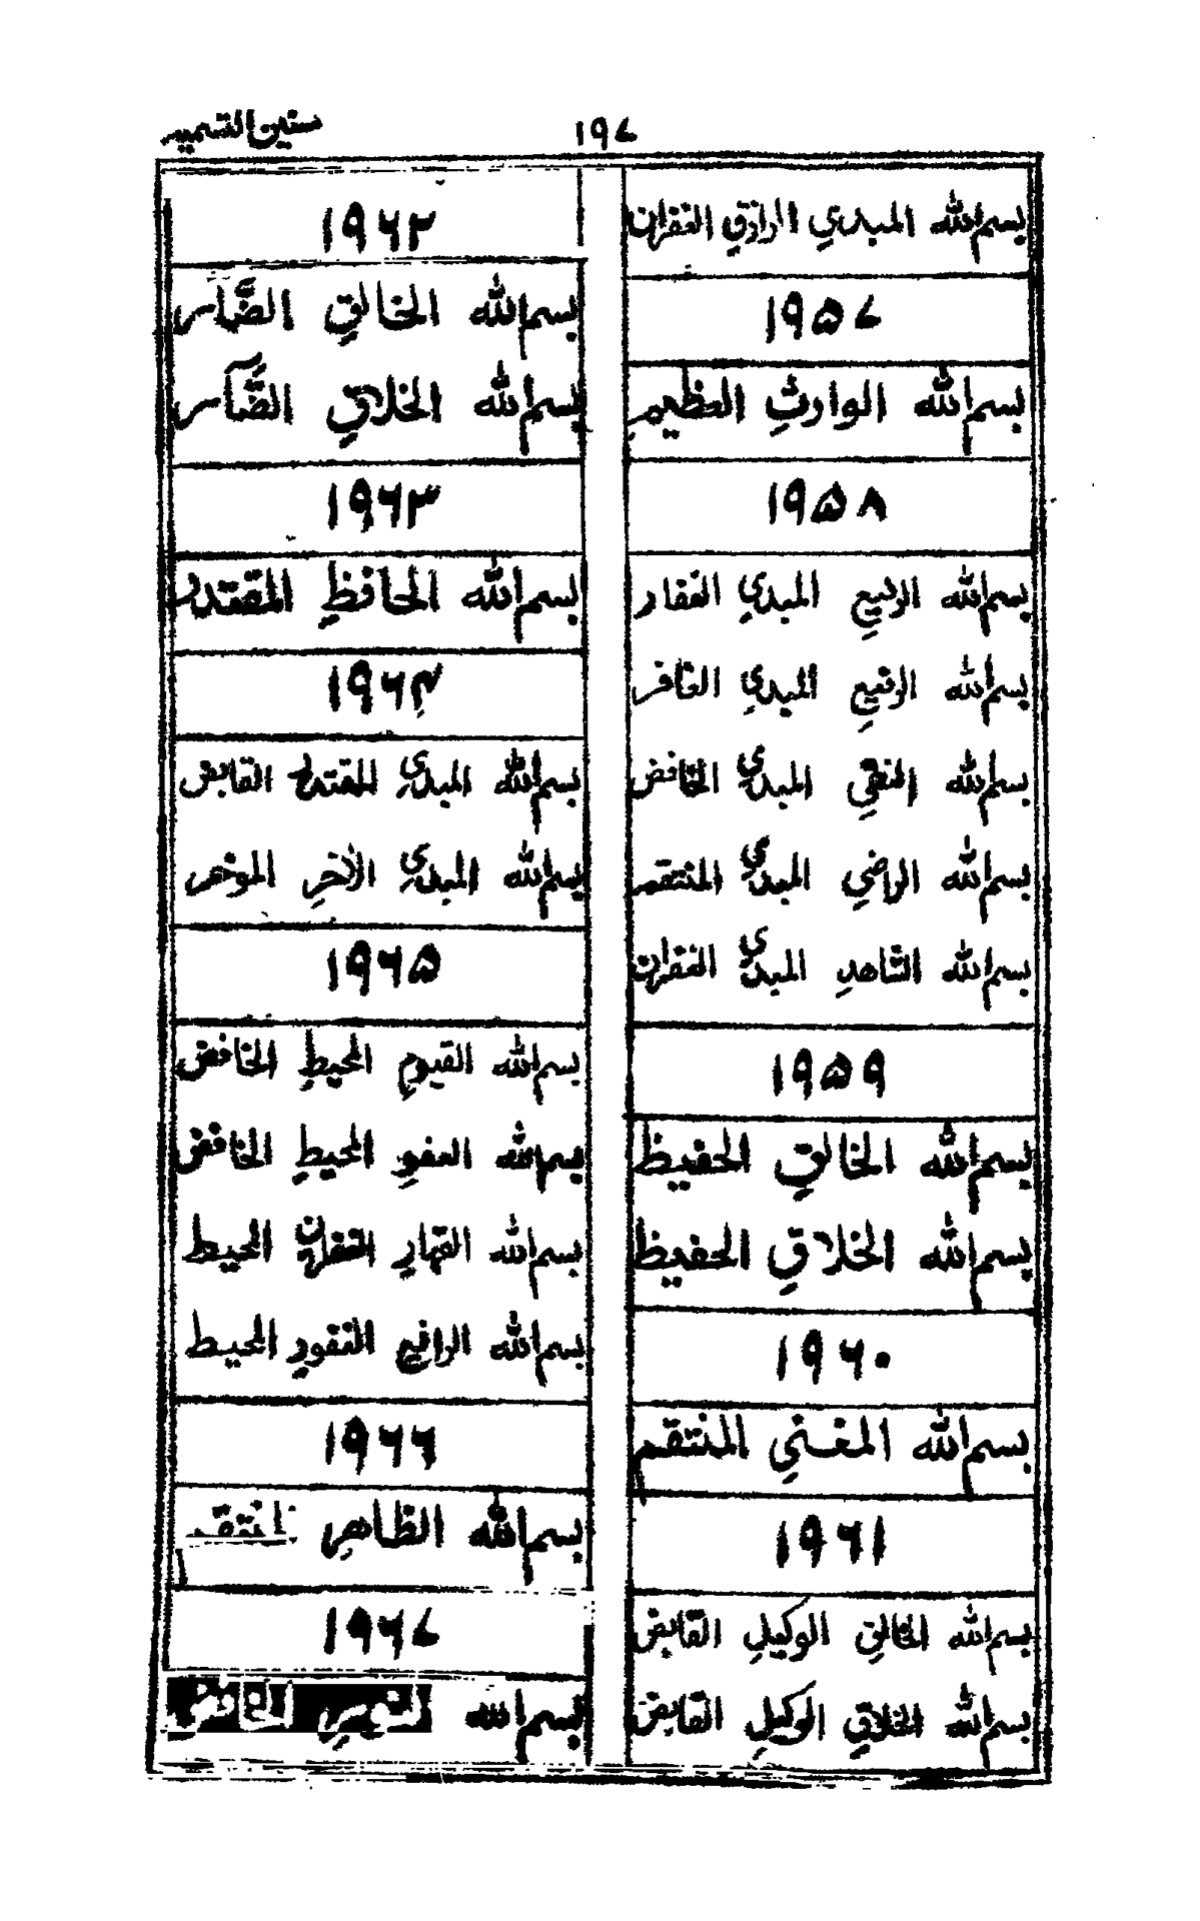 سنين التسميه
١٩٧
بسم الله المبدي الرازق الغفران
١٩٥٧
بسم الله الوارث العظيم
١٩٥٨
بسم الله الربيع المبدي الغفار
بسم الله الرفيع المبدي الغافر
بسم الله المبدي الخافض
بسم الله الراضي المبدي المنتقم
بسم الله الشاهد المبدي الغفران
١٩٥٩
بسم الله الخالق الحفيظ
بسم الله الخلاق الحفيظ
١٩٦٠
بسم الله المغني المنتقم
١٩٦١
بسم الله الخالق الوكيل القابض
بسم الله الخلاق الوكيل القابض
١٩٦٢
بسم الله الخالق الضّآر
بسم الله الخلاق الضّآر
١٩٦٣
بسم الله الحافظ المقتدر
١٩٦٤
بسم الله المبدي المقتدر القابض
بسم الله المبدي الآخر الموخر
١٩٦٥
بسم الله القيوم المحيط الخافض
بسم الله العفو المحيط الخافض
بسم الله القهار الغفران المحيط
بسم الله الرافع الغفور المحيط
١٩٦٦
بسم الله الظاهر المنتقم
١٩٦٧
بسم الله